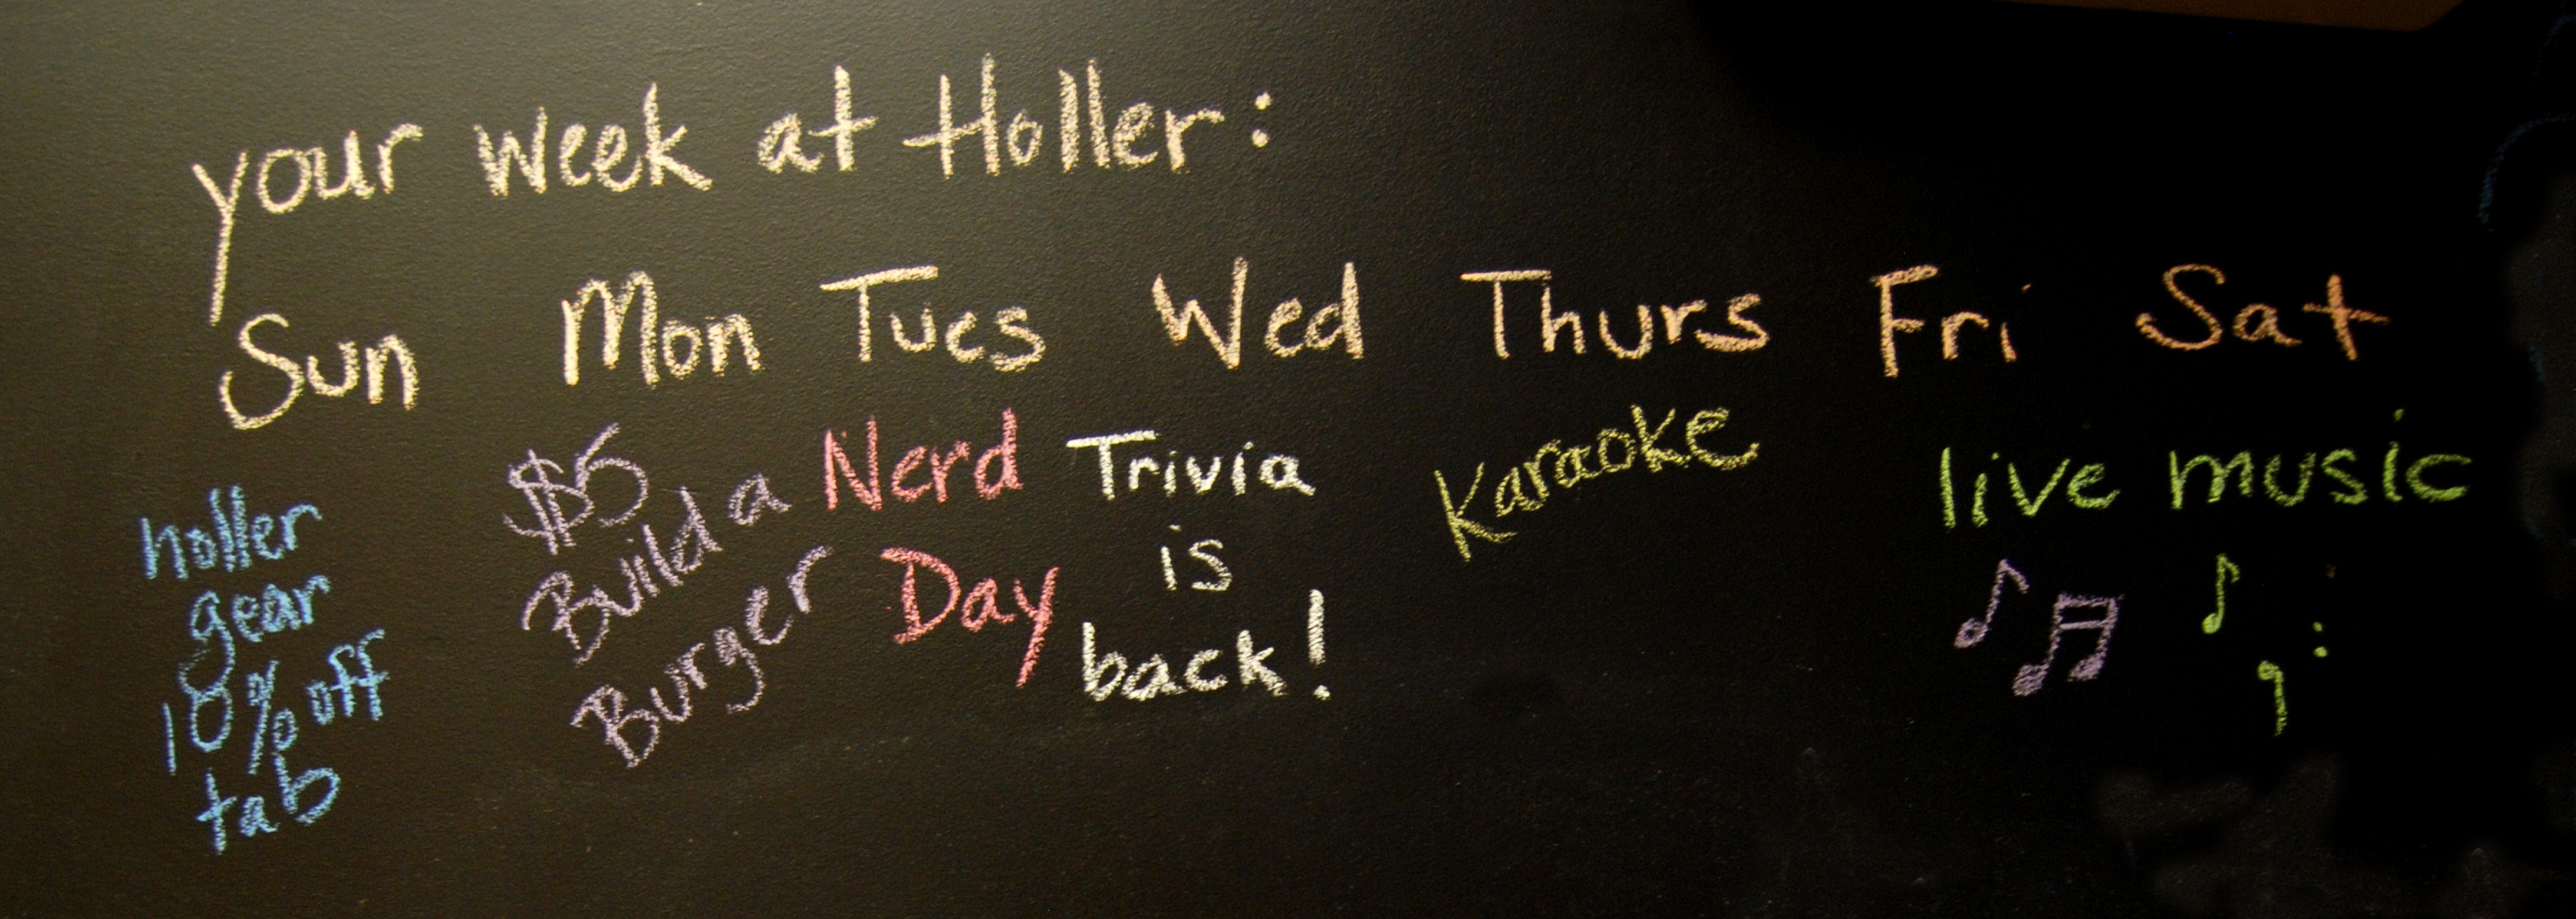 your week at Holler:
Sun Mon Tues Wed Thurs Fri Sat
holler
gear
10% off
tab
$5
Build a
Burger
Nerd
Day
Trivia
is
back!
Karaoke
live music